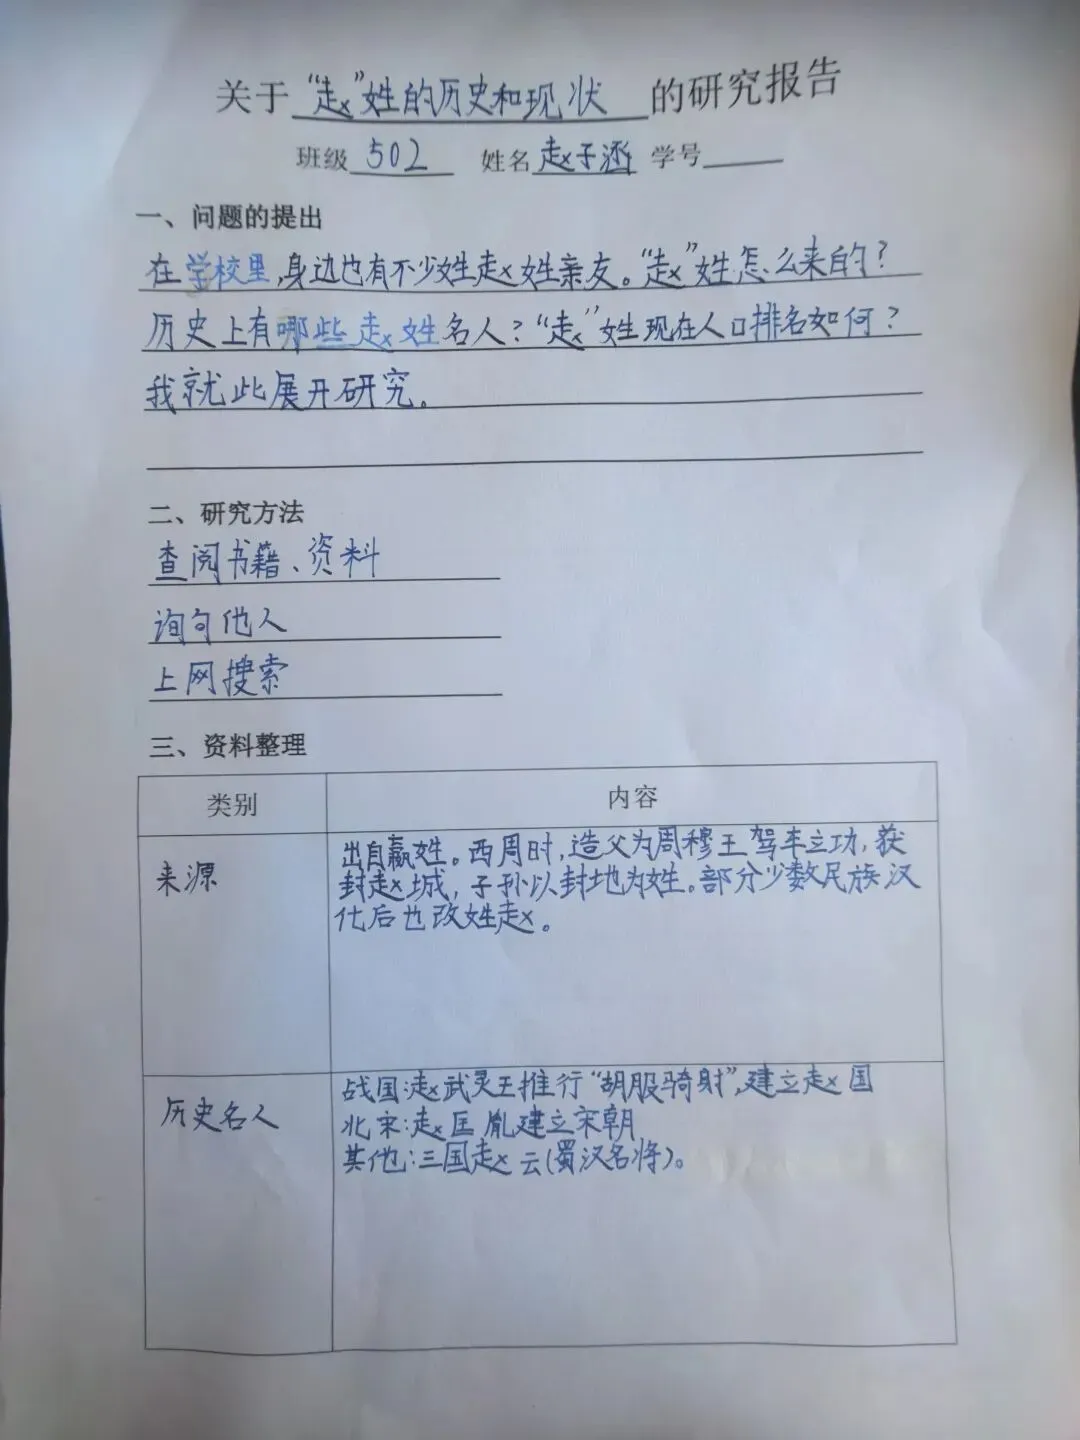 关于“赵”姓的历史和现状的研究报告
班级 502 姓名 赵子涵 学号
一、问题的提出
在学校里,身边也有不少姓赵姓亲友。“赵”姓怎么来的?
历史上有哪些赵姓名人?“赵”姓现在人口排名如何?
我就此展开研究。
二、研究方法
查阅书籍、资料
询句他人
上网搜索
三、资料整理
类别 内容
来源
出自嬴姓。西周时,造父为周穆王驾车立功,获
封赵城,子孙以封地为姓。部分少数民族汉
化后也改姓赵。
历史名人
战国:赵武灵王推行“胡服骑射”,建立赵国
北宋:赵匡胤建立宋朝
其他:三国赵云(蜀汉名将)。